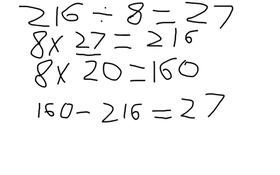 216 ÷ 8 = 27
8 x 27 = 216
8 x 20 = 160
160 - 216 = 27